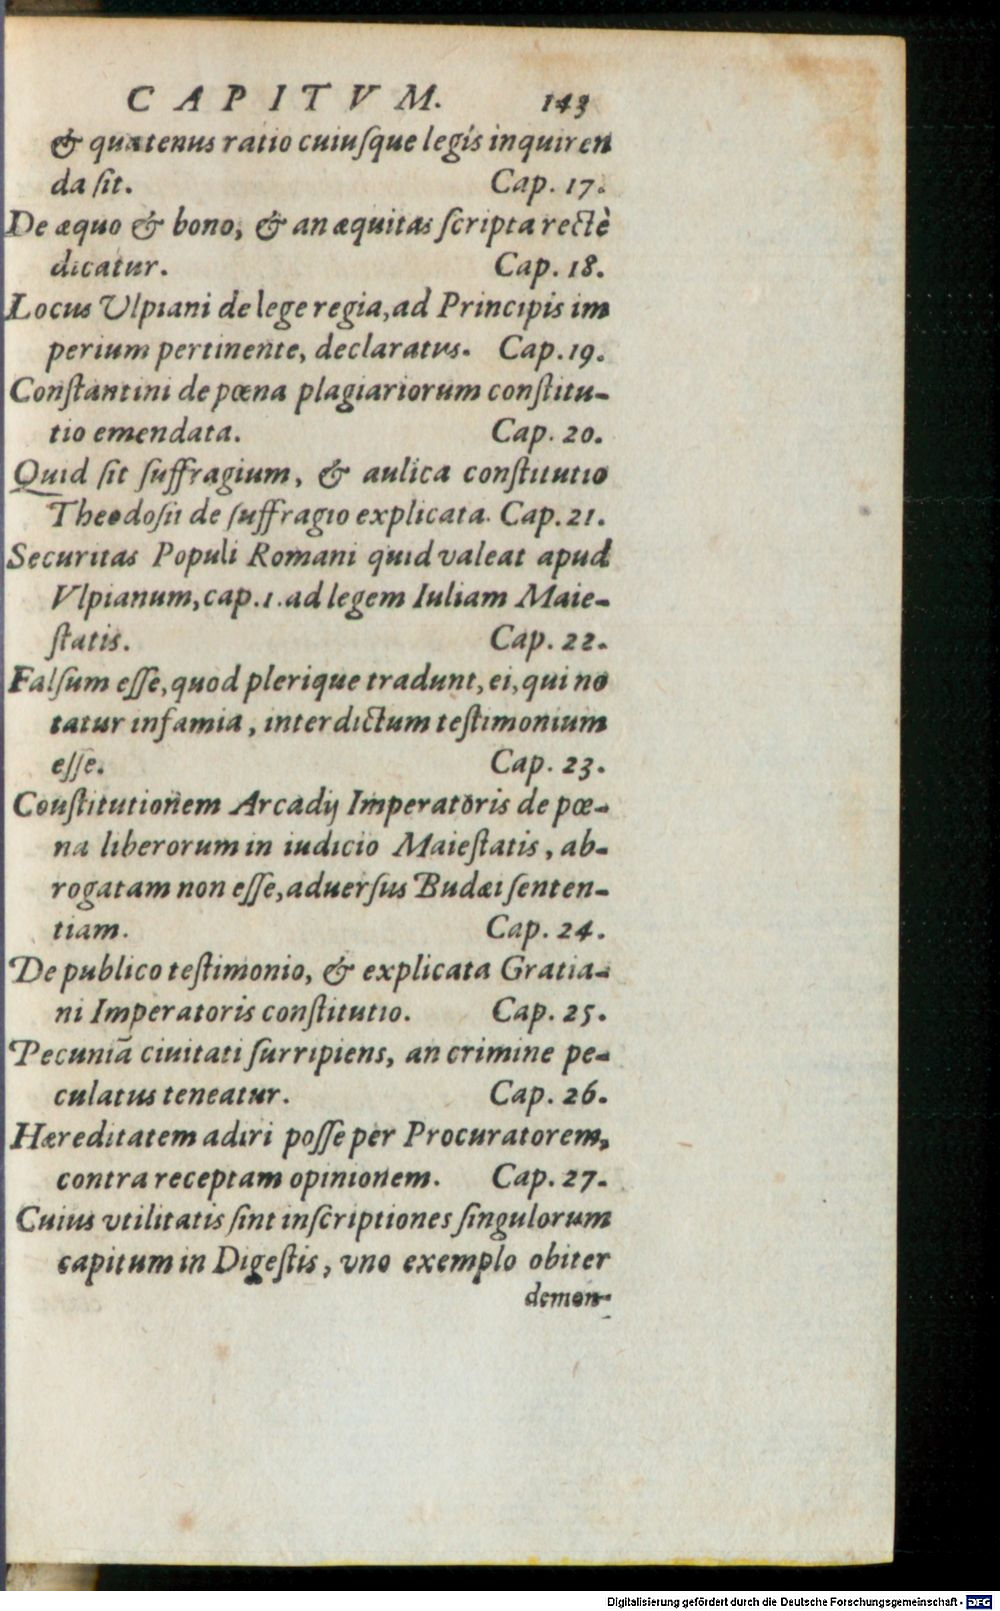 CAPITVM. 143
& quatenus ratio cuiuſque legis inquiren
da ſit. Cap. 17.
De æquo & bono, & an æquitas ſcripta rectè
dicatur. Cap. 18.
Locus Vlpiani de lege regia, ad Principis im
perium pertinente, declaratus. Cap. 19.
Conſtantini de pœna plagiariorum conſtitu-
tio emendata. Cap. 20.
Quid ſit ſuffragium, & aulica conſtitutio
Theodoſii de ſuffragio explicata. Cap. 21.
Securitas Populi Romani quid valeat apud
Vlpianum, cap. 1. ad legem Iuliam Maie-
ſtatis. Cap. 22.
Falſum eſſe, quod plerique tradunt, ei, qui no
tatur infamia, interdictum teſtimonium
eſſe. Cap. 23.
Couſtitutionem Arcadij Imperatoris de pœ-
na liberorum in iudicio Maieſtatis, ab-
rogatam non eſſe, aduerſus Budæi ſenten-
tiam. Cap. 24.
De publico teſtimonio, & explicata Gratia-
ni Imperatoris conſtitutio. Cap. 25.
Pecuniã ciuitati ſurripiens, an crimine pe-
culatus teneatur. Cap. 26.
Hæreditatem adiri poſſe per Procuratorem,
contra receptam opinionem. Cap. 27.
Cuius vtilitatis ſint inſcriptiones ſingulorum
capitum in Digeſtis, vno exemplo obiter
demon-
Digitalisierung gefördert durch die Deutsche Forschungsgemeinschaft - DFG